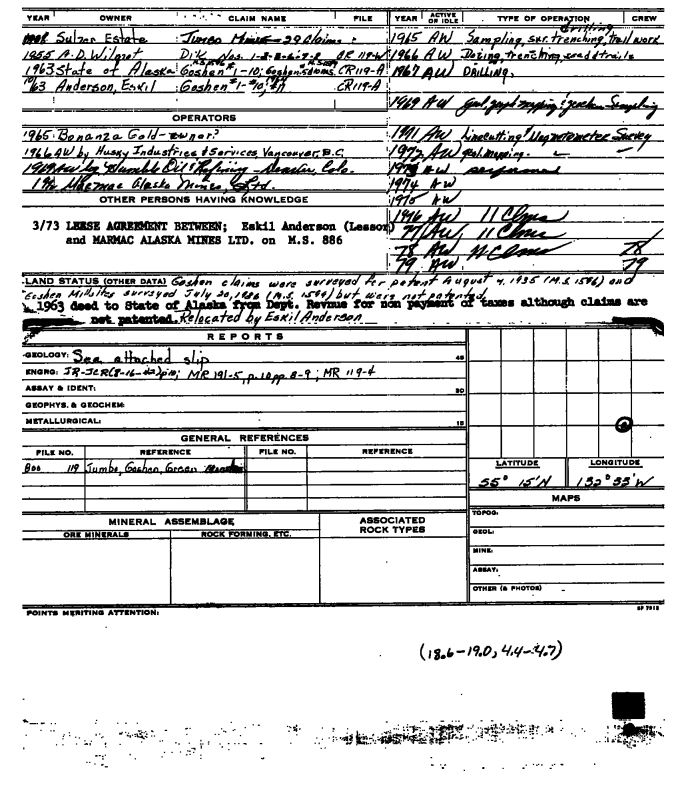 YEAR OWNER CLAIM NAME FILE
Sulzer Estate Jumbo Mines - 29 Claims
1955 A.D. Wilmot Dik Nos. 1-2-3-6-7-8 CR 119-W
1963 State of Alaska Goshen #1-10; Goshen CR119-A
10/63 Anderson, Eskil Goshen #1-#10, #A CR119-A
OPERATORS
1965 - Bonanza Gold - owner?
1966 AW by Husky Industries & Services, Vancouver, B.C.
1969 AW by Humble Oil & Refining - Denver, Colo.
Marmac Alaska Mines, Ltd.
OTHER PERSONS HAVING KNOWLEDGE
3/73 LEASE AGREEMENT BETWEEN; Eskil Anderson (Lessor)
and MARMAC ALASKA MINES LTD. on M.S. 886
YEAR ACTIVE OR IDLE TYPE OF OPERATION CREW
Drilling
1965 AW Sampling, sur. trenching, trail work
1966 AW Dozing, trenching, road & trails
1967 AW DRILLING.
1969 AW geol, geoph mapping & geochem Sampling
1971 AW linecutting & Magnetometer Survey
1972 AW geol. mapping.
1973 AW performed
1974 AW
1975 AW
1976 AW 11 Clms
77 AW 11 Clms
78 AW 11 Clms 78
79 AW 79
LAND STATUS (OTHER DATA) Goshen claims were surveyed for patent August 4, 1935 (M.S. 1596) and
Goshen Millsites surveyed July 20, 1936 (M.S. 1599) but were not patented.
1963 deed to State of Alaska from Dept. Revenue for non payment of taxes although claims are
not patented. Relocated by Eskil Anderson
REPORTS
GEOLOGY: See attached slip 45
ENGRG: IR-JCR(8-16-42)p10; MR 191-5, p.10 pp. 8-9; MR 119-4
ASSAY & IDENT: 30
GEOPHYS. & GEOCHEM:
METALLURGICAL: 15
GENERAL REFERENCES
FILE NO. REFERENCE FILE NO. REFERENCE
Boo 119 Jumbo, Goshen, Green
LATITUDE LONGITUDE
55° 15'N 132° 35'W
MAPS
TOPOG:
GEOL:
MINE:
ASSAY:
OTHER (& PHOTOS)
MINERAL ASSEMBLAGE ASSOCIATED
ORE MINERALS ROCK FORMING, ETC. ROCK TYPES
POINTS MERITING ATTENTION: SP 7912
(18.6-19.0, 4.4-4.7)